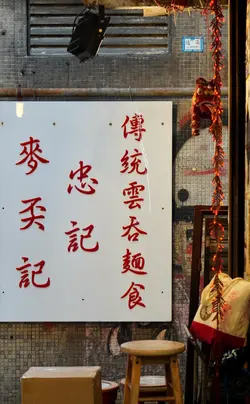 傳統雲吞麵食
忠記
麥奀記